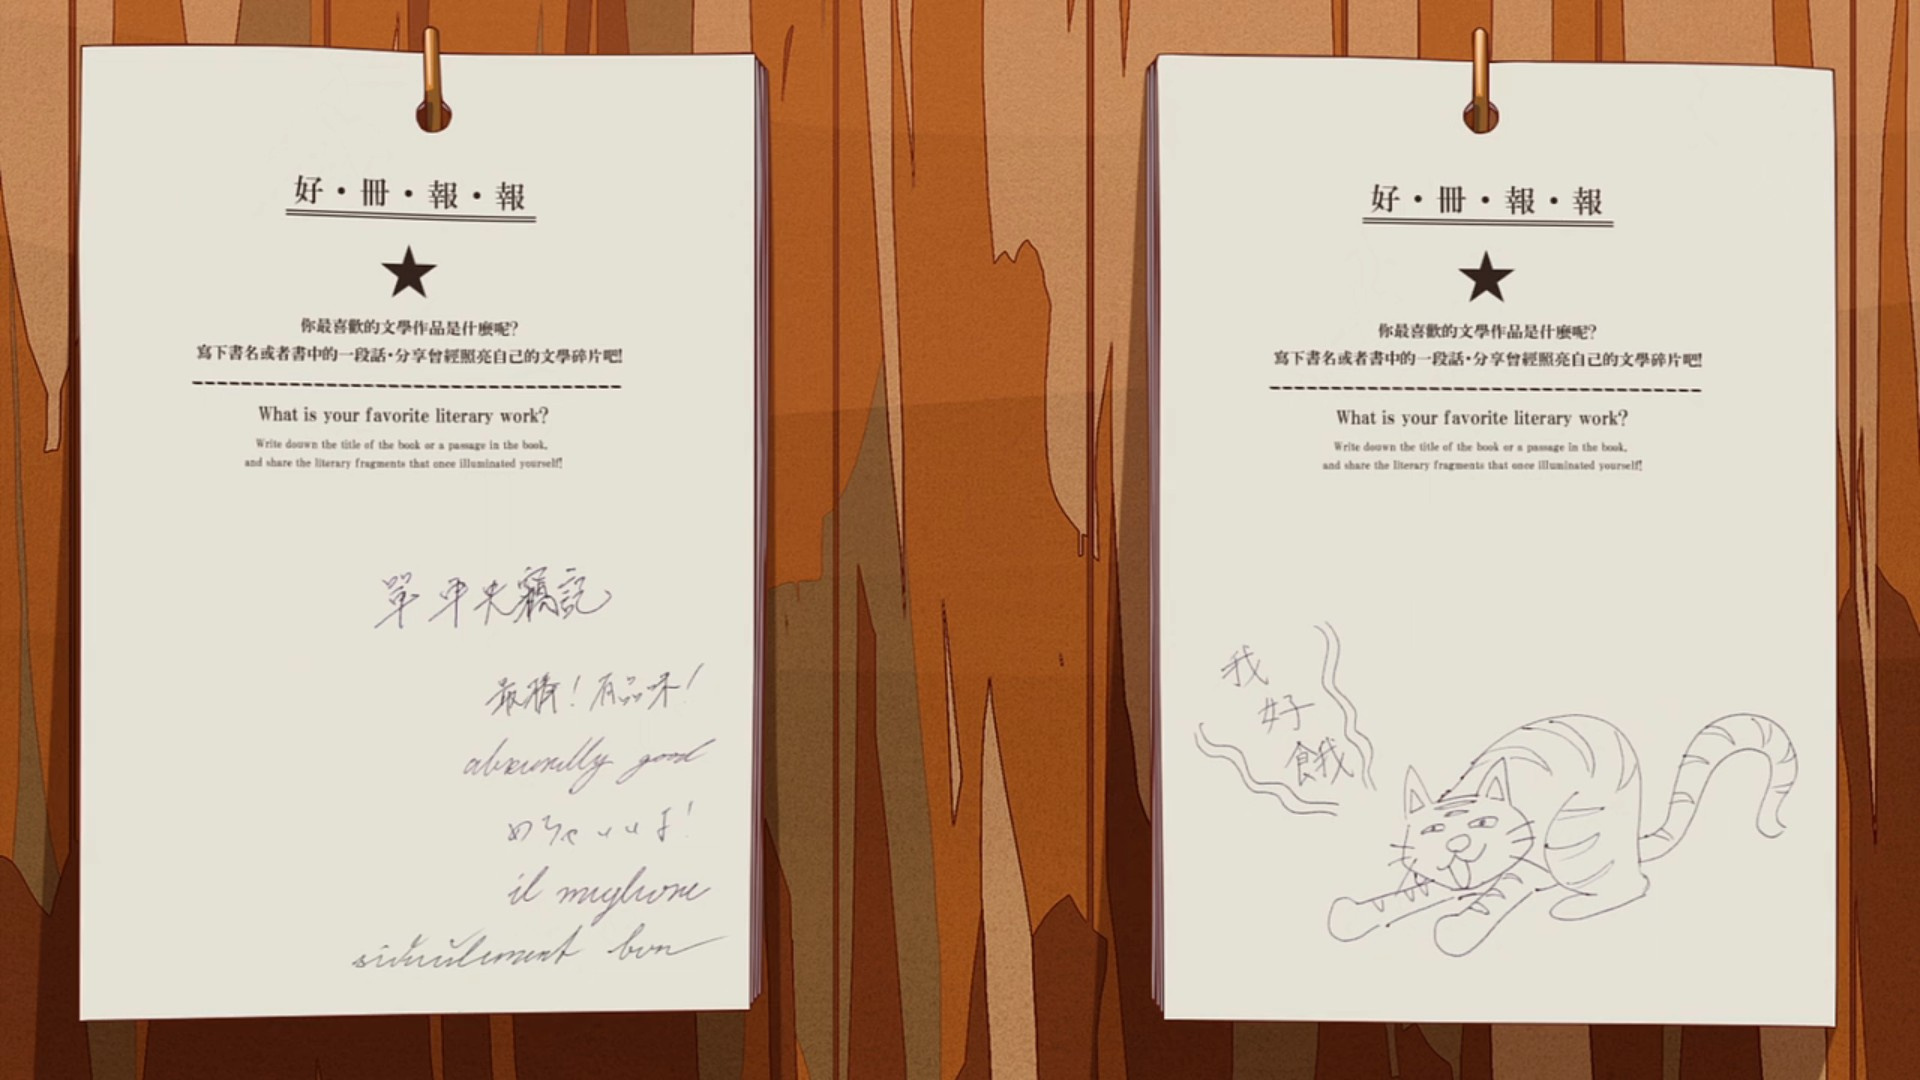 好・冊・報・報
你最喜歡的文學作品是什麼呢?
寫下書名或者書中的一段話,分享曾經照亮自己的文學碎片吧!
What is your favorite literary work?
Write douwn the title of the book or a passage in the book,
and share the literary fragments that once illuminated yourself!
單車失竊記
最棒!有品味!
absurdly good
めちゃいいよ!
il migliore
ridiculement bon
好・冊・報・報
你最喜歡的文學作品是什麼呢?
寫下書名或者書中的一段話,分享曾經照亮自己的文學碎片吧!
What is your favorite literary work?
Write douwn the title of the book or a passage in the book,
and share the literary fragments that once illuminated yourself!
我
好
餓